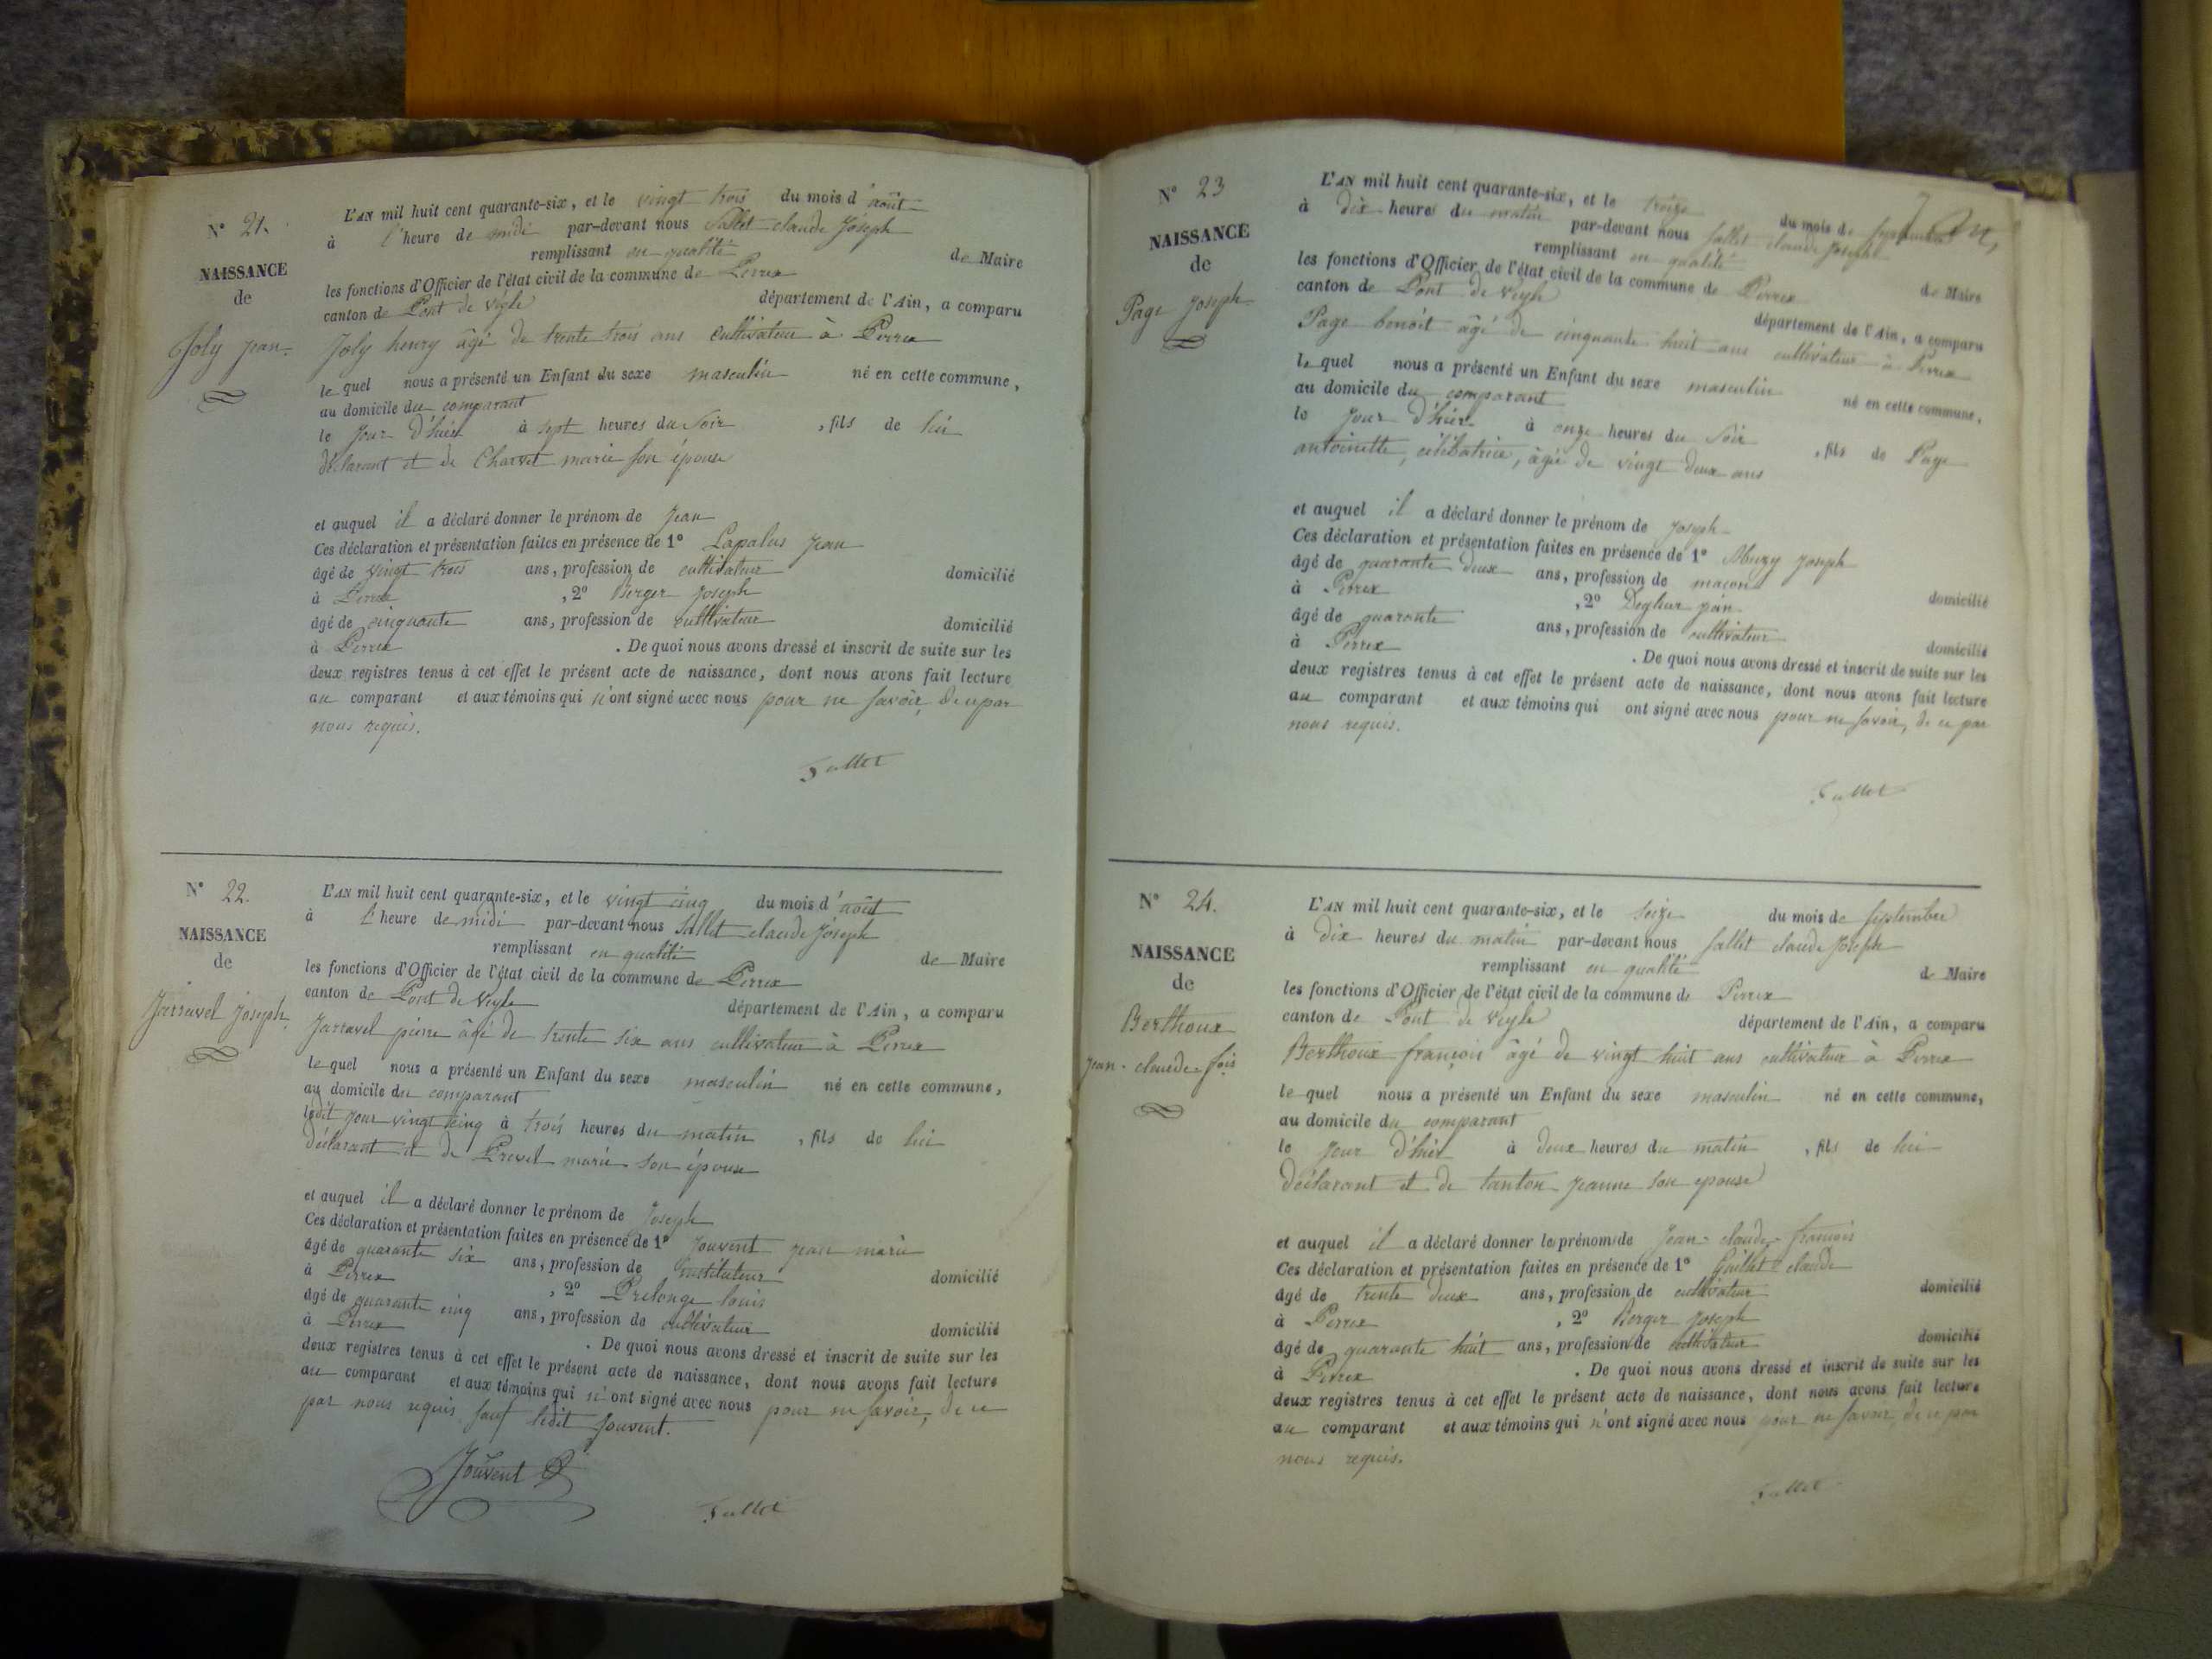 N° 21.
NAISSANCE
de
Joly Jean.
L'AN mil huit cent quarante-six, et le vingt trois du mois d'août
à l'heure de midi par-devant nous Sallet claude Joseph
remplissant en qualité de Maire
les fonctions d'Officier de l'état civil de la commune de Perrex
canton de Pont de Veyle département de l'Ain, a comparu
Joly henry âgé de trente trois ans cultivateur à Perrex
le quel nous a présenté un Enfant du sexe masculin né en cette commune,
au domicile du comparant
le jour d'hier à sept heures du soir, fils de lui
déclarant et de Charvet marie son épouse
et auquel il a déclaré donner le prénom de Jean
Ces déclaration et présentation faites en présence de 1° Lapalus Jean
âgé de vingt trois ans, profession de cultivateur domicilié
à Perrex, 2° Berger Joseph
âgé de cinquante ans, profession de cultivateur domicilié
à Perrex. De quoi nous avons dressé et inscrit de suite sur les
deux registres tenus à cet effet le présent acte de naissance, dont nous avons fait lecture
au comparant et aux témoins qui n'ont signé avec nous pour ne savoir, de ce par
nous requis.
Sallet
N° 22.
NAISSANCE
de
Jarravel Joseph.
L'AN mil huit cent quarante-six, et le vingt cinq du mois d'août
à l'heure de midi par-devant nous Sallet claude Joseph
remplissant en qualité de Maire
les fonctions d'Officier de l'état civil de la commune de Perrex
canton de Pont de Veyle département de l'Ain, a comparu
Jarravel pierre âgé de trente six ans cultivateur à Perrex
le quel nous a présenté un Enfant du sexe masculin né en cette commune,
au domicile du comparant
ledit jour vingt cinq à trois heures du matin, fils de lui
déclarant et de Prevel marie son épouse
et auquel il a déclaré donner le prénom de Joseph
Ces déclaration et présentation faites en présence de 1° Jouvent jean marie
âgé de quarante six ans, profession de instituteur domicilié
à Perrex, 2° Prelonge louis
âgé de quarante cinq ans, profession de cultivateur domicilié
à Perrex. De quoi nous avons dressé et inscrit de suite sur les
deux registres tenus à cet effet le présent acte de naissance, dont nous avons fait lecture
au comparant et aux témoins qui n'ont signé avec nous pour ne savoir, de ce
par nous requis sauf ledit Jouvent.
Jouvent
Sallet
N° 23
NAISSANCE
de
Page Joseph.
L'AN mil huit cent quarante-six, et le treize du mois de septembre
à dix heures du matin par-devant nous Sallet claude Joseph
remplissant en qualité de Maire
les fonctions d'Officier de l'état civil de la commune de Perrex
canton de Pont de Veyle département de l'Ain, a comparu
Page benoit âgé de cinquante huit ans cultivateur à Perrex
le quel nous a présenté un Enfant du sexe masculin né en cette commune,
au domicile du comparant
le jour d'hier à onze heures du soir, fils de Page
antoinette, célibatrice, âgée de vingt deux ans
et auquel il a déclaré donner le prénom de Joseph
Ces déclaration et présentation faites en présence de 1° Joseph
âgé de quarante deux ans, profession de maçon domicilié
à Perrex, 2°
âgé de quarante ans, profession de cultivateur domicilié
à Perrex. De quoi nous avons dressé et inscrit de suite sur les
deux registres tenus à cet effet le présent acte de naissance, dont nous avons fait lecture
au comparant et aux témoins qui ont signé avec nous pour ne savoir, de ce par
nous requis.
Sallet
N° 24.
NAISSANCE
de
Berthoux
Jean-claude-fois
L'AN mil huit cent quarante-six, et le seize du mois de septembre
à dix heures du matin par-devant nous Sallet claude Joseph
remplissant en qualité de Maire
les fonctions d'Officier de l'état civil de la commune de Perrex
canton de Pont de Veyle département de l'Ain, a comparu
Berthoux françois âgé de vingt huit ans cultivateur à Perrex
le quel nous a présenté un Enfant du sexe masculin né en cette commune,
au domicile du comparant
le jour d'hier à deux heures du matin, fils de lui
déclarant et de tanton jeanne son epouse
et auquel il a déclaré donner les prénoms de Jean-claude-francois
Ces déclaration et présentation faites en présence de 1° Guillet claude
âgé de trente deux ans, profession de cultivateur domicilié
à Perrex, 2° Berger Joseph
âgé de quarante huit ans, profession de cultivateur domicilié
à Perrex. De quoi nous avons dressé et inscrit de suite sur les
deux registres tenus à cet effet le présent acte de naissance, dont nous avons fait lecture
au comparant et aux témoins qui n'ont signé avec nous pour ne savoir, de ce par
nous requis.
Sallet